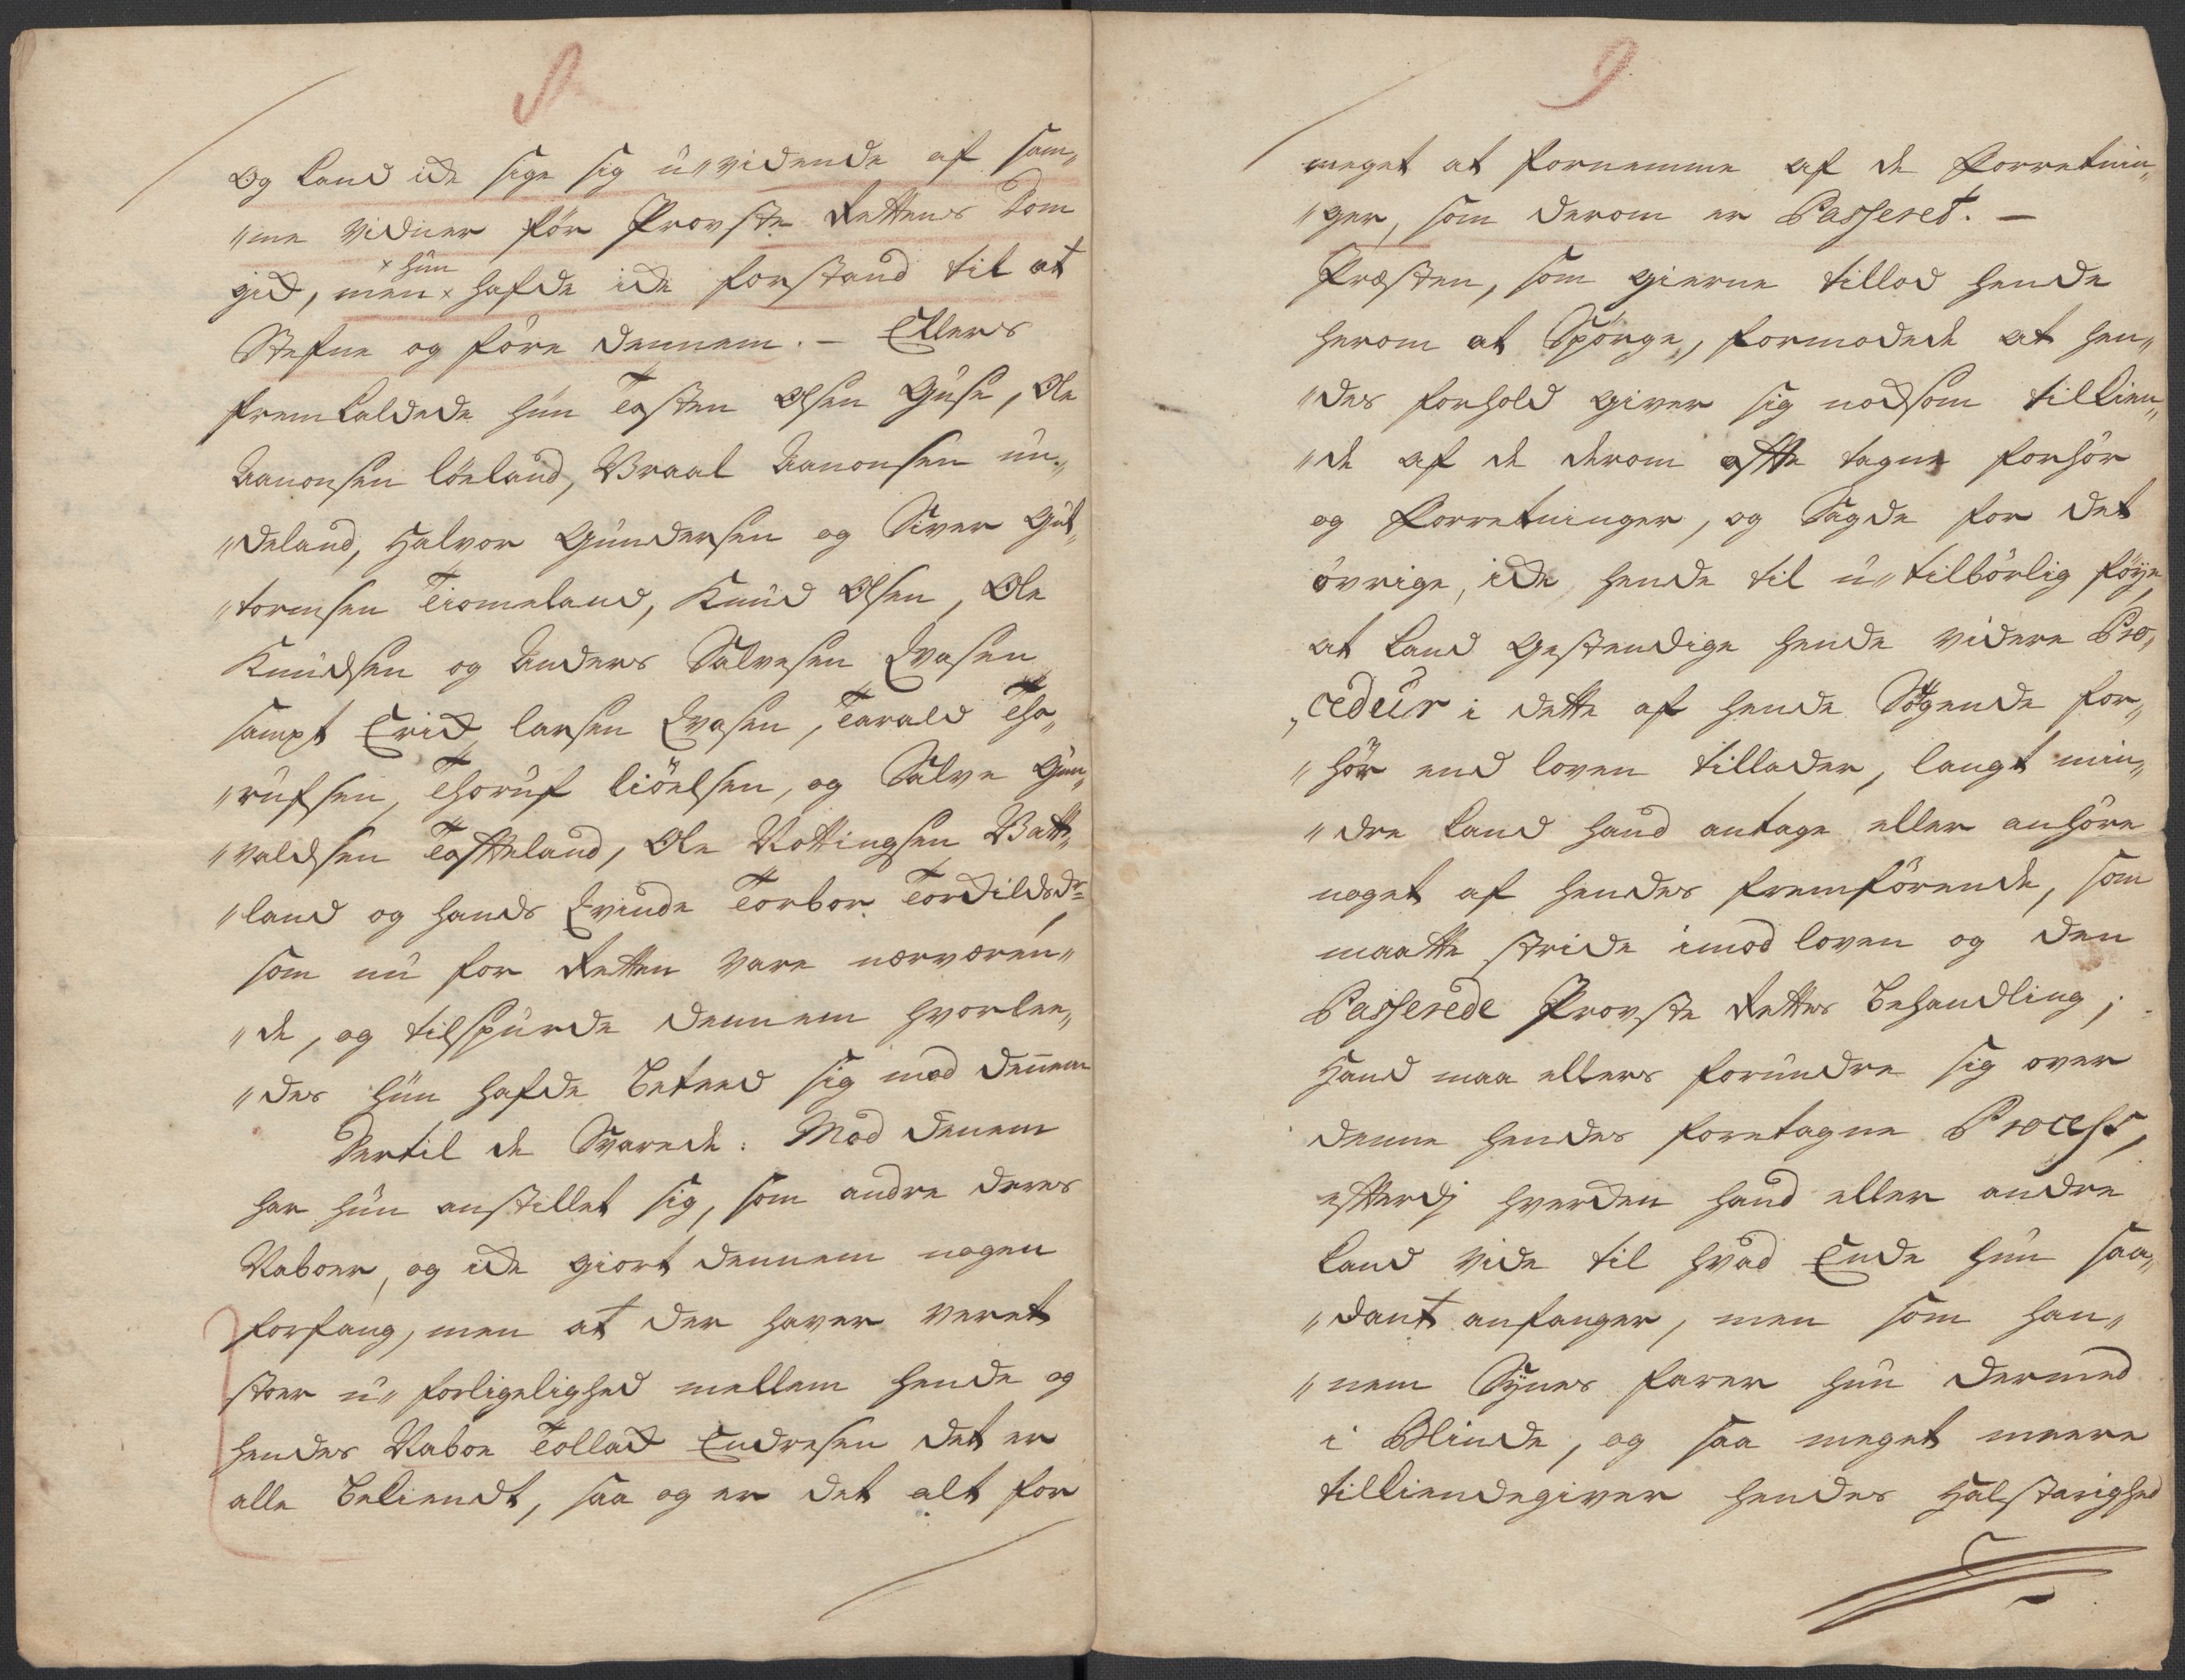 8
og kand icke sige sig u„vidende af sam„
„me vidner før Provste Rettens Dom
gick, men × hafde icke forstand til at
× hun
Stefne og føre dennem. – Ellers
fremkaldede hun Tosten Olsen Guse, Ole
Aanonsen Löeland, Braal Aanonsen Un„
„deland, Halvor Gundersen og Siver Gut„
„tormsen Tiomeland, Knud Olsen, Ole
Knudsen og Anders Salvesen Qvasen
sampt Erick Larsen Qvasen, Tarald Tho„
„rufsen, Thoruf Kiöelsen, og Salve Gun„
„valdsen Tofteland, Ole Nottingsen Batt„
„land og hands Qvinde Torbor Torckildsdr
som nu for Retten vare nærværen„
„de, og tilspurde dennem hvorlee„
„des hun hafde beteed sig mod dennem
Dertil de Svarede: Mod dennem
har hun anstillet sig, som andre deres
Naboer, og icke giort dennem nogen
forfang, men at der haver veret
stoer u„forligelighed mellem hende og
hendes Naboe Tollack Endresen det er
alle bekiendt, saa og er det alt for
9
meget at fornemme af de Forretnin„
„ger, som derom er Passeret. –
Præsten, som gierne tillod hende
herom at Spørge, formodede at hen„
„des forhold giver sig nocksom tilkien„
„de af de derom ofte tagne forhør
og Forretninger, og Sagde for det
øvrige, icke hende til u„tilbørlig føye,
at kand gestendige hende videre Pro„
„cedur i dette af hende Søgende for„
„hør end loven tillader, langt min„
„dre kand hand antage eller anhøre
noget af hendes fremførende, som
maatte stride imod loven og den
Passerede Provste Rettes behandling;
Hand maa ellers forundre sig over
denne hendes foretagne Process,
efterdj hverken hand eller andre
kand vide til hvad Ende hun saa„
„dant anfanger, men som han„
„nem Synes farer hun dermed
i Blinde, og saa meget meere
tilkiendegiver hendes Halstarighed